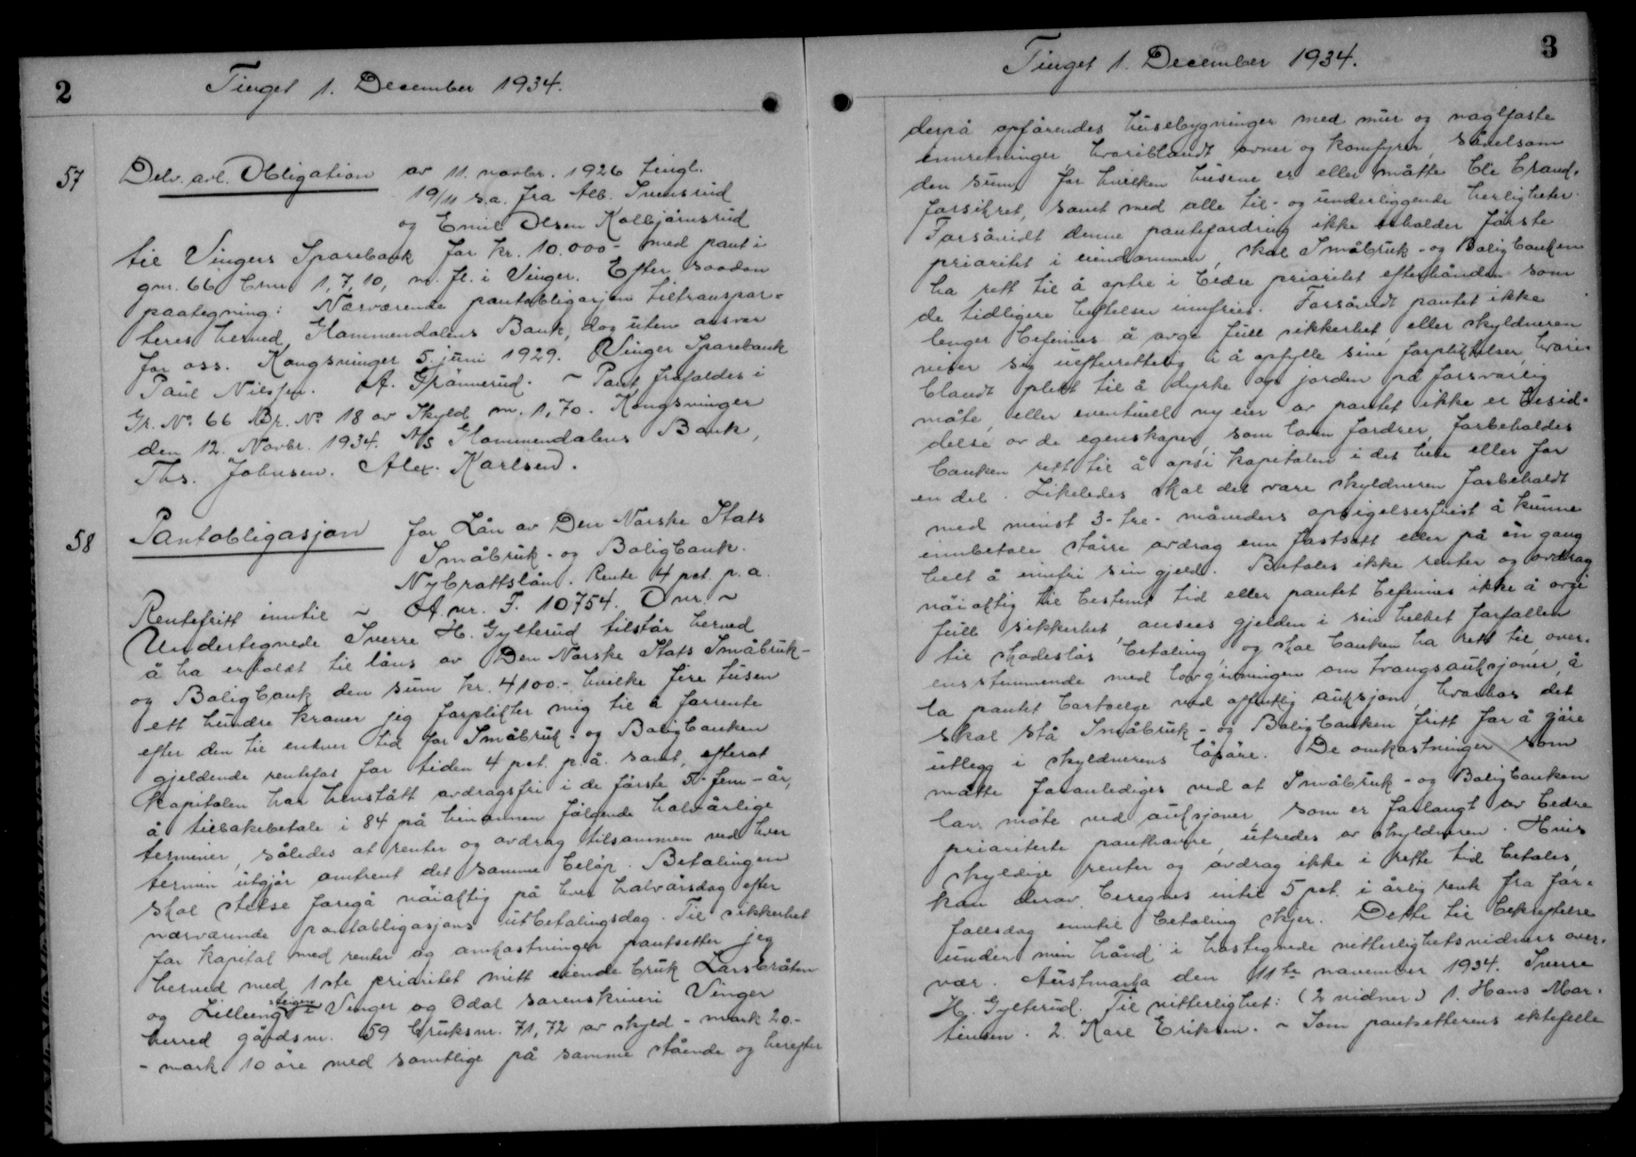 2
Tinget 1. December 1934.
57
Delv. avl. Obligation av 11. novbr. 1926 tingl.
19/11 s.a. fra Alb. Svensrud
og Emil Olsen Kolbjørnsrud
til Vingers Sparebank for kr. 10.000- med pant i
gnr. 66 bnr 1, 7, 10, m. fl. i Vinger. Efter saadan
paategning: Nærværende pantobligasjon tiltranspor-
teres herved Hammendalens Bank, dog uten ansvar
for oss. Kongsvinger 5. juni 1929. Vinger Sparebank
Paul Nilsen. A. Grønnerud. ~ Pant frafaldes i
Gr. No. 66 Br. No 18 av Skyld m. 1,70. Kongsvinger
den 12. Novbr. 1934. A/S Hammendalens Bank,
Ths. Johnsen. Alex. Karlsen.
58
Pantobligasjon for Lån av Den Norske Stats
Småbruk- og Boligbank.
Nybrottslån. Rente 4 pct. p. a.
Rentefritt inntil ~ A nr. F. 10754. O nr. ~
Undertegnede Sverre H. Gylterud tilstår herved
å ha erholdt til låns av Den Norske Stats Småbruk-
og Boligbank den sum kr. 4100.- hvilke fire tusen
ett hundre kroner jeg forplikter mig til å forrente
efter den til enhver tid for Småbruk- og Boligbanken
gjeldende rentefot for tiden 4 pct. p.å. samt, efterat
Kapitalen har henstått avdragsfri i de første 5- fem - år,
å tilbakebetale i 84 på hinannen følgende halvårlige
terminer, således at renter og avdrag tilsammen ved hver
termin utgjør omtrent det samme beløp. Betalingen
skal stedse foregå nøiaktig på hver halvårsdag efter
nærværende pantobligasjons utbetalingsdag. Til sikkerhet
for kapital med renter og omkastninger pantsetter jeg
herved med 1ste prioritet mitt eiende bruk Larsbråten
og Lilleeng i Vinger og Odal sorenskriveri Vinger
herred gårdsnr. 59 bruksnr. 71, 72 av skyld - mark 20.-
- mark 10 øre med samtlige på samme stående og herefter
3
Tinget 1. December 1934.
derpå opførendes husebygninger med mur og naglfaste
innretninger hvoriblandt ovner og komfyrer, såvelsom
den sum, for hvilken husene er eller måtte bli brand-
forsikret, samt med alle til- og underliggende herligheter.
Forsåvidt denne pantefordring ikke beholder første
prioritet i eiendommen, skal Småbruk- og Boligbanken
ha rett til å optre i bedre prioritet efterhånden som
de tidligere heftelser innfries. Forsåvidt pantet ikke
lenger befinnes å avgi full sikkerhet, eller skyldneren
viser sig uefterrettelig i å opfylle sine forpliktelser, hvori-
blandt plikt til å dyrke op jorden på forsvarlig
måte, eller eventuell ny eier av pantet ikke er i besid-
delse av de egenskaper, som loven fordrer, forbeholdes
banken rett til å opsi kapitalen i det hele eller for
en del. Likeledes skal det være skyldneren forbeholdt
med minst 3- tre- måneders opsigelsesfrist å kunne
innbetale større avdrag enn fastsatt eller på en gang
helt å innfri sin gjeld. Betales ikke renter og avdrag
nøiaktig til bestemt tid eller pantet befinnes ikke å avgi
full sikkerhet, ansees gjelden i sin helhet forfallen
til skadesløs betaling og skal banken ha rett til, over-
ensstemmende med lovgivningen om tvangsauksjoner å
la pantet bortselge ved offentlig auksjon, hvorhos det
skal stå Småbruk- og Boligbanken fritt for å gjøre
utlegg i skyldnerens løsøre. De omkostninger som
måtte foranlediges ved at Småbruk- og Boligbanken
lar møte ved auksjoner som er forlangt av bedre
prioriterte panthavere, utredes av skyldneren. Hvis
skyldige renter og avdrag ikke i rette tid betales,
kan derav beregnes intil 5 pct. i årlig rente fra for-
fallsdag inntil betaling skjer. Dette til bekreftelse
under min hånd i hostegnede vitterlighetsvidners over-
vær. Austmarka den 11te november 1934. Sverre
H. Gylterud. Til vitterlighet: (2 vidner) 1. Hans Mar-
tinsen. 2. Kåre Eriksen. ~ Som pantsetterens ektefelle